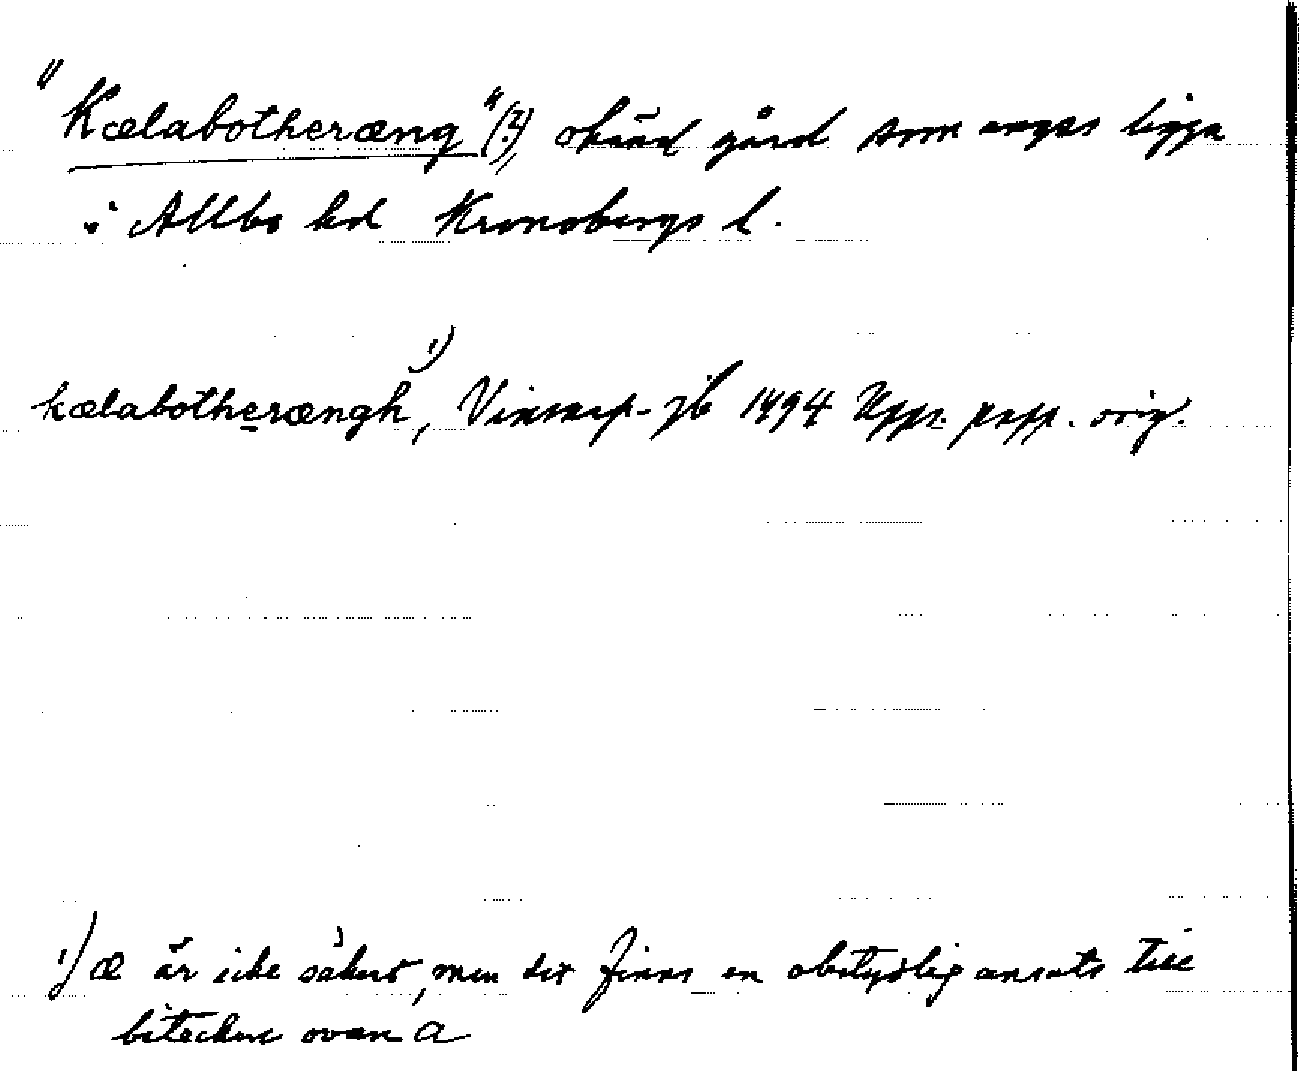 "Kælabotheræng"(?), okänd gård som anges ligga
i Allbo hd Kronobergs l.
kælabotherængh¹⁾, Vinstorp-jb 1494 Upps. papp. orig.
¹⁾ æ är icke säkert, men det finns en obetydlig ansats till
bitecken ovan a